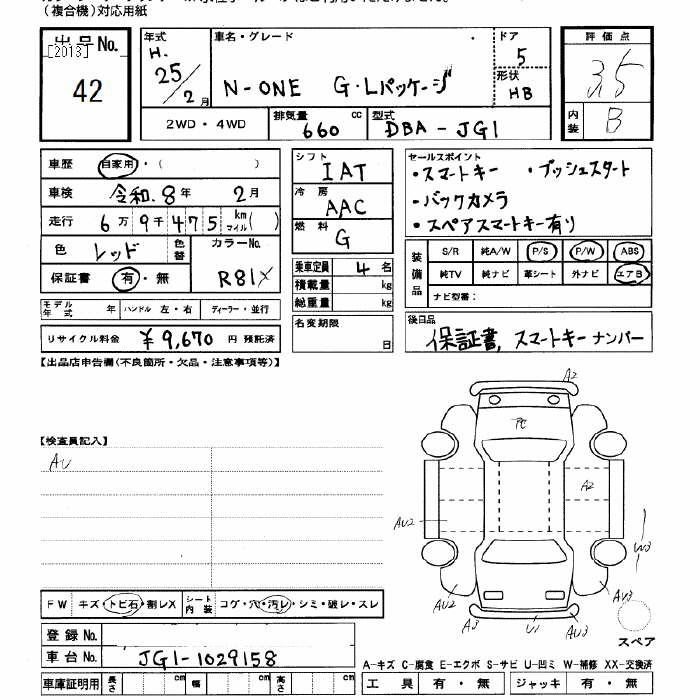 (複合機)対応用紙
出品No.
[2013]
42
年式
H.
25/2月
車名・グレード
N-ONE G・Lパッケージ
ドア
5
形状
HB
評価点
3.5
内装
B
2WD・4WD
排気量
660 cc
型式
DBA-JG1
車歴 自家用・( )
車検 令和.8年 2月
走行 6万9千475 km マイル( )
色 レッド 色替 カラーNo.
保証書 有・無 R81X
モデル年式 年 ハンドル 左・右 ディーラー・並行
リサイクル料金 ¥9,670 円 預託済
シフト
IAT
冷房
AAC
燃料
G
乗車定員 4名
積載量 kg
総重量 kg
名変期限
日
セールスポイント
・スマートキー ・プッシュスタート
・バックカメラ
・スペアスマートキー有り
装備品
S/R 純A/W P/S P/W ABS
純TV 純ナビ 革シート 外ナビ エアB
ナビ型番:
後日品
保証書,スマートキーナンバー
【出品店申告欄(不良箇所・欠品・注意事項等)】
【検査員記入】
AU
A2
PC
A2
AU2
W3
AU2
AU3
A3
U1
AU3
スペア
FW キズ・トビ石・割レX シート内装 コゲ・穴・汚レ・シミ・破レ・スレ
登録No.
車台No. JG1-1029158
車庫証明用 長さ cm 幅 cm 高さ cm
A-キズ C-腐食 E-エクボ S-サビ U-凹ミ W-補修 XX-交換済
工具 有・無 ジャッキ 有・無